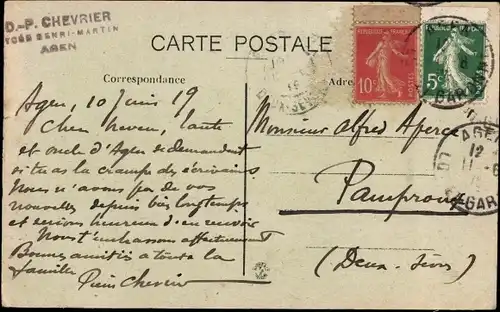 D.-P. CHEVRIER
HENRI-MARTIN
AGEN
CARTE POSTALE
Correspondance
10c
5c
Agen, 10 Juin 19
Cher neveu, tante
et oncle d'Agen se demandent
si tu as la crampe des écrivains.
Nous n'avons pas de vos
nouvelles depuis bien longtemps
et serions heureux d'en recevoir
Nous t'embrassons affectueusement
Bonnes amitiés à toute la
famille
Monsieur Alfred
Pamproux
(Deux-Sèvres)
AGEN
12